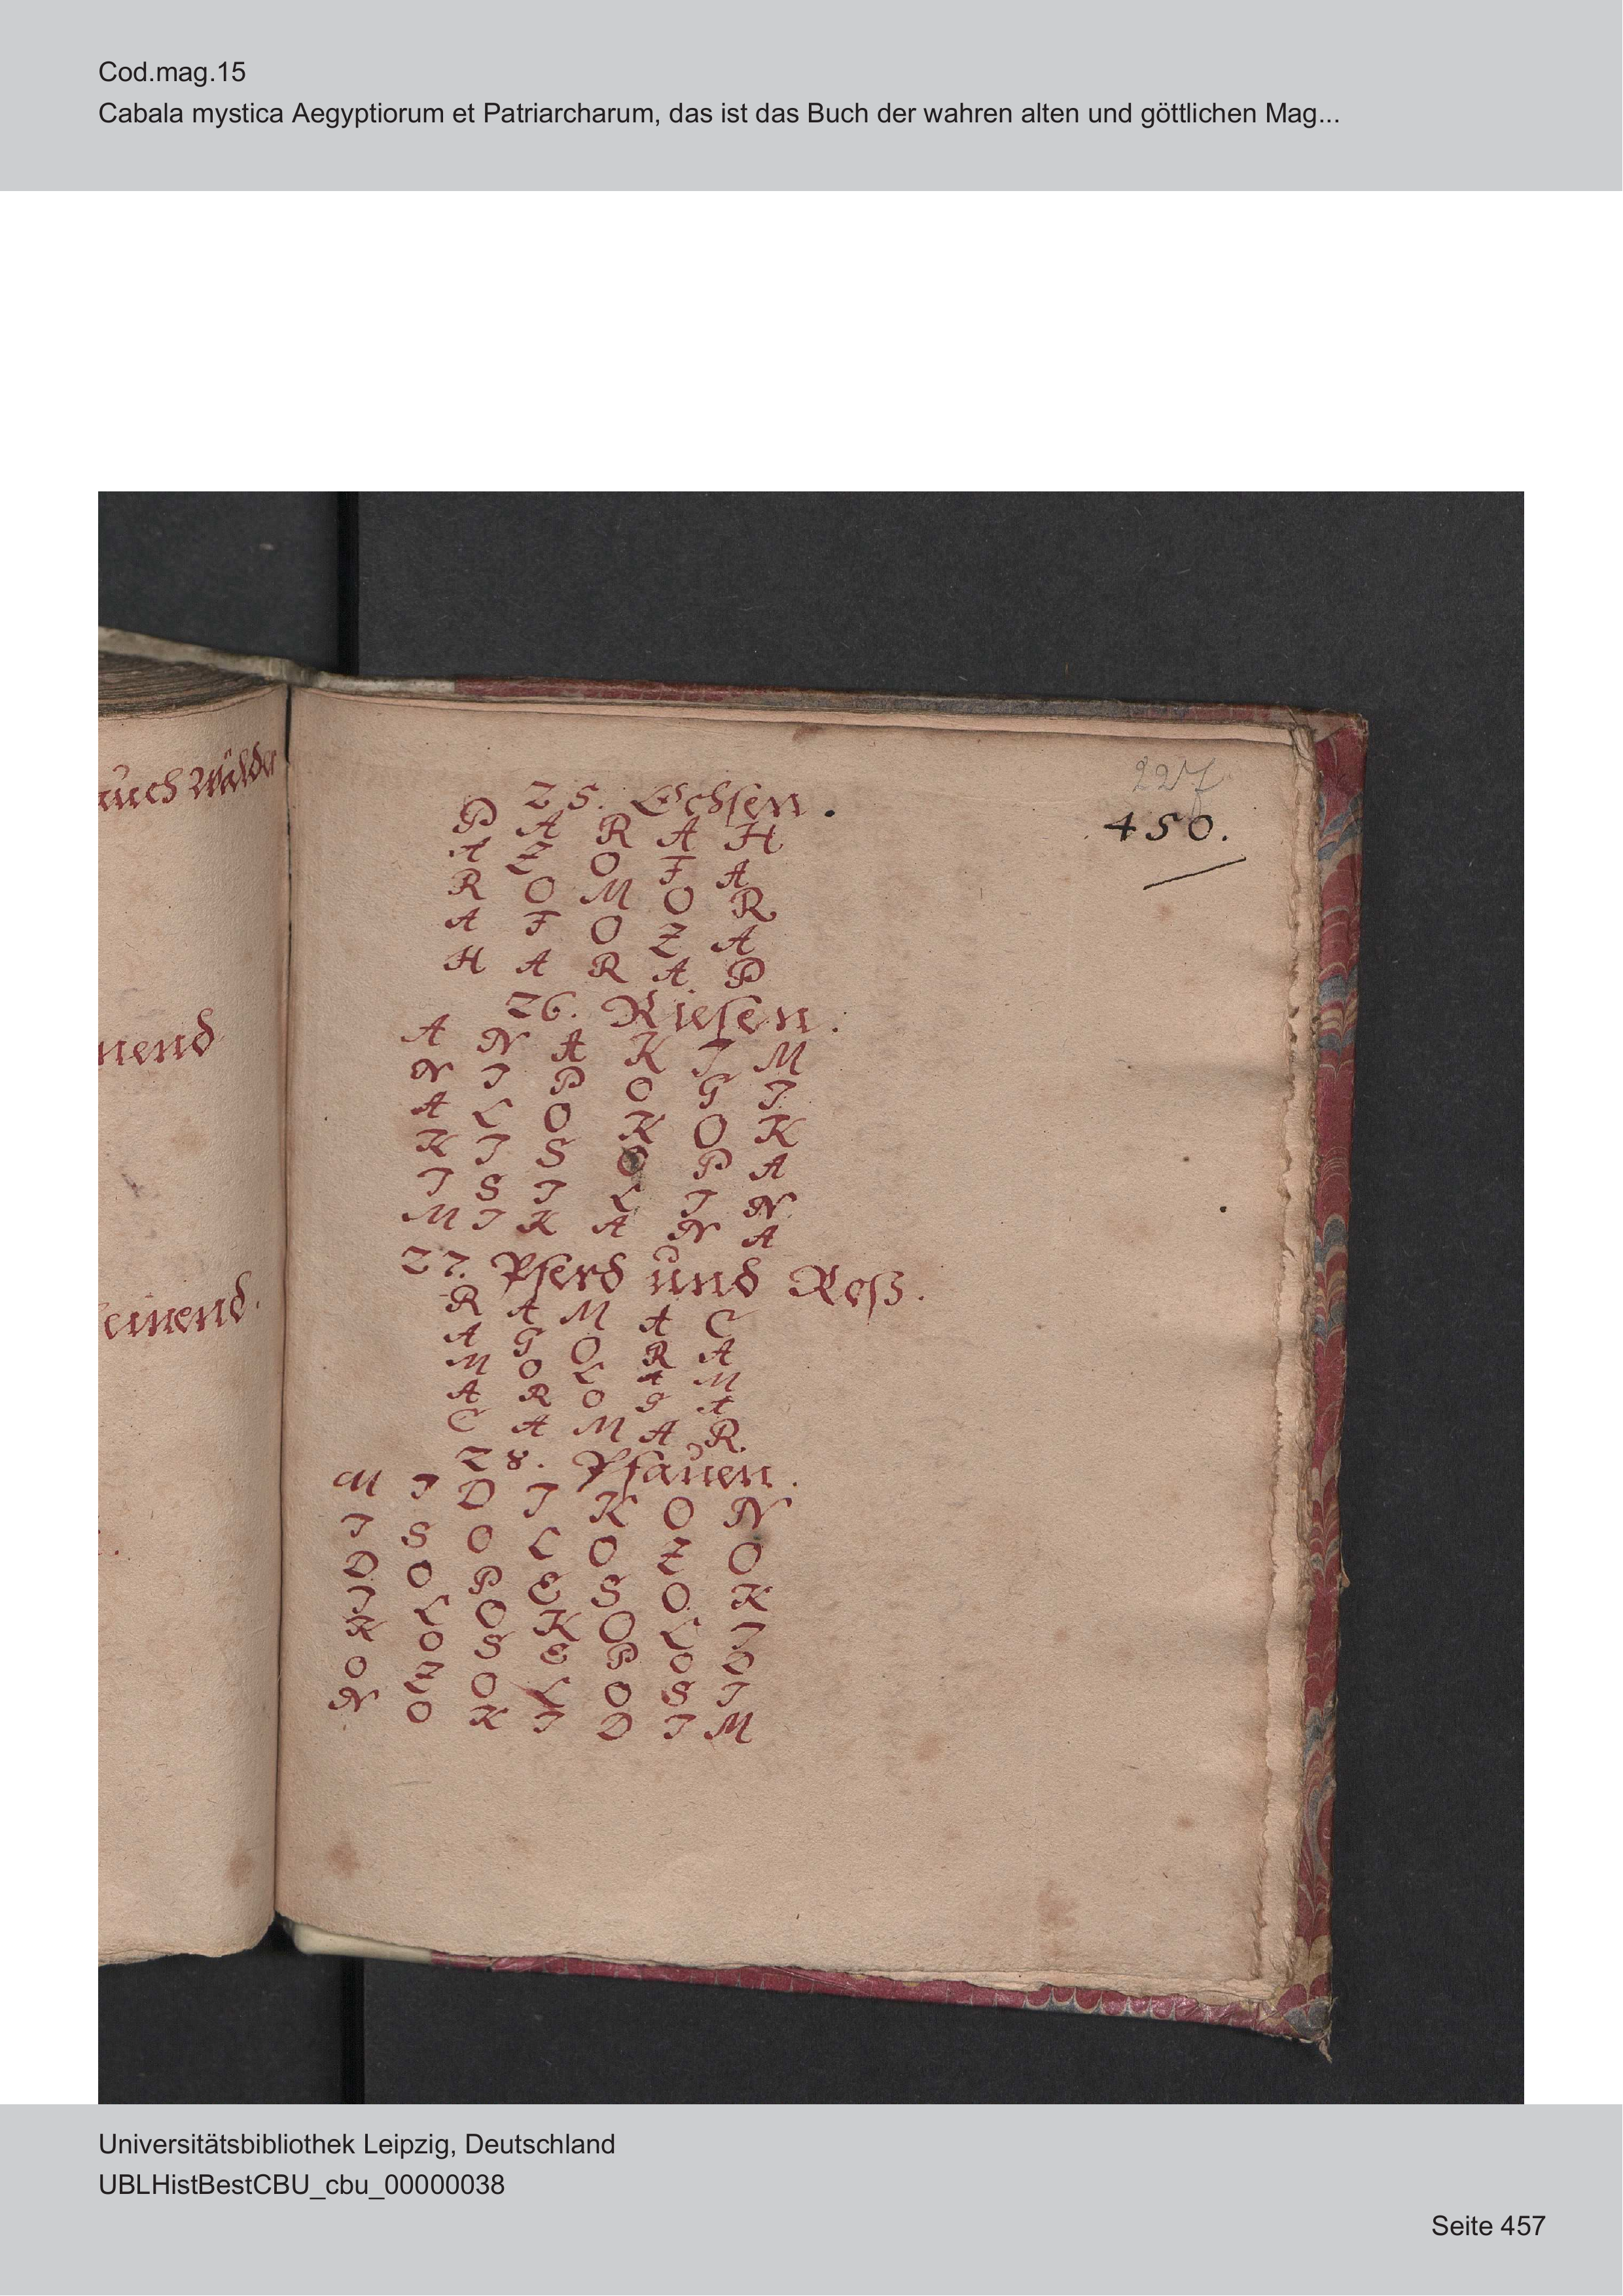 Cod.mag.15
Cabala mystica Aegyptiorum et Patriarcharum, das ist das Buch der wahren alten und göttlichen Mag...
auch Wälder
nend
einend.
227
450.
25. Ochsen.
P A R A H
A Z O F A
R O M O R
A F O Z A
H A R A P
26. Riesen.
A N A K I M
N I P O G I
A L O K O K
K I S O P A
I S I L I N
M I K A N A
27. Pferd und Roß.
R A M A C
A G O R A
M O L A M
A R O G A
C A M A R
28. Pfauen.
M I D I K O N
I S O L O Z O
D O P E S O K
I L O K O L I
K O S E P O D
O Z O L O S I
N O K I D I M
Universitätsbibliothek Leipzig, Deutschland
UBLHistBestCBU_cbu_00000038
Seite 457